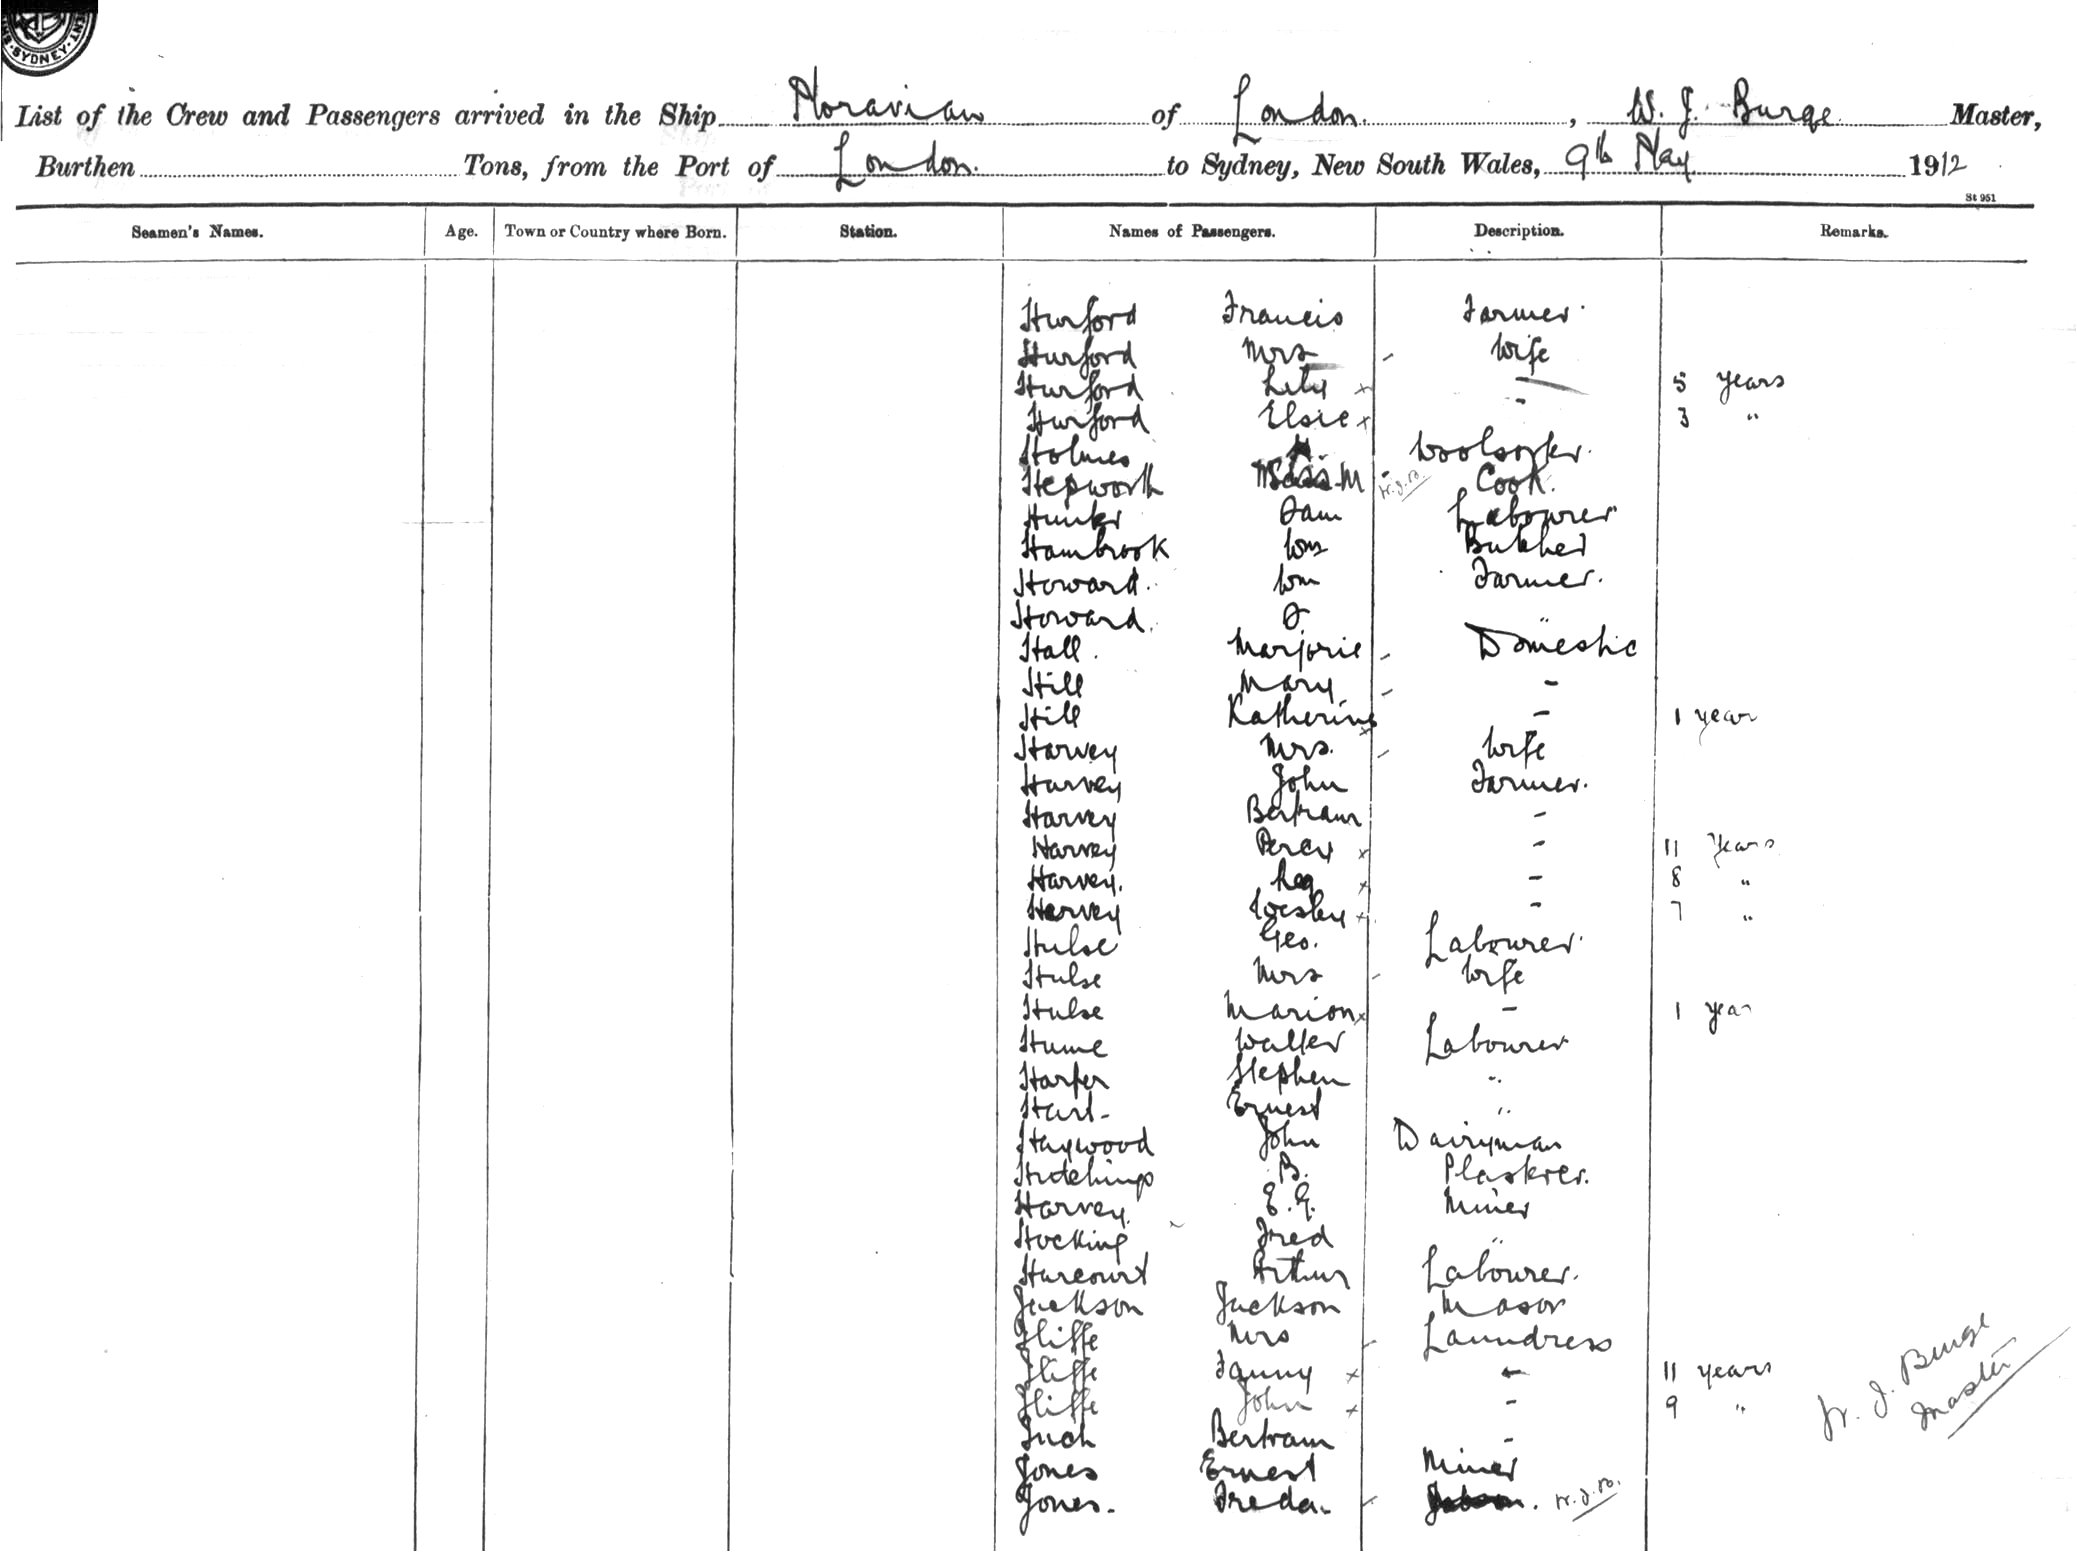 SYDNEY
List of the Crew and Passengers arrived in the Ship Moravian of London. , W. J. Burge Master,
Burthen Tons, from the Port of London. to Sydney, New South Wales, 9th May 1912
St 951
Seamen's Names. Age. Town or Country where Born. Station. Names of Passengers. Description. Remarks.
Hurford Francis Farmer
Hurford Mrs - Wife
Hurford Lily x - 5 years
Hurford Elsie x - 3 "
Holmes Woolsorter.
Hepworth M - W.J.B. Cook.
Hunter Sam Labourer
Hambrook Wm Butcher
Howard. Wm Farmer.
Howard. J "
Hall. Marjorie - Domestic
Hill Mary - -
Hill Katherine x - 1 year
Harvey Mrs. - Wife
Harvey John Farmer.
Harvey Bertram -
Harvey Percy x - 11 Years
Harvey. Reg x - 8 "
Harvey Wesley x - 7 "
Hulse Geo. Labourer
Hulse Mrs - Wife
Hulse Marion x - 1 year
Hume Walter Labourer
Harper Stephen "
Hart - Ernest "
Haywood John Dairyman
Hutchings B. Plasterer.
Harvey. E. G. Miner
Hocking Fred "
Harcourt Arthur Labourer.
Jackson Jackson Mason
Iliffe Mrs - Laundress
Iliffe Fanny x - 11 years
Iliffe John x - 9 "
Juch Bertram -
Jones Ernest Miner
Jones. Freda. - W.J.B.
W. J. Burge
Master